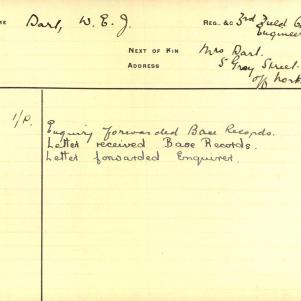 ME Dart, W. E. J. REG. &C 3rd Field C
Engineer
NEXT OF KIN Mrs Dart.
ADDRESS 5 Gray Street.
off North
1/P. Enquiry forwarded Base Records.
Letter received Base Records.
Letter forwarded Enquirer.